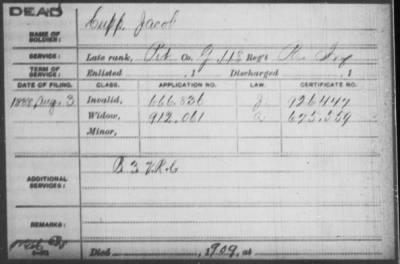 DEAD
NAME OF SOLDIER: Cupp, Jacob
SERVICE: Late rank, Pvt Co. G, 118 Reg't Pa. Inf
TERM OF SERVICE: Enlisted , 1 Discharged , 1
DATE OF FILING. CLASS. APPLICATION NO. LAW. CERTIFICATE NO.
1888, Aug. 3 Invalid, 666.836 926447
Widow, 912.061 675.559
Minor,
ADDITIONAL SERVICES: B 3 V.R.C
REMARKS:
Died , 1909, at